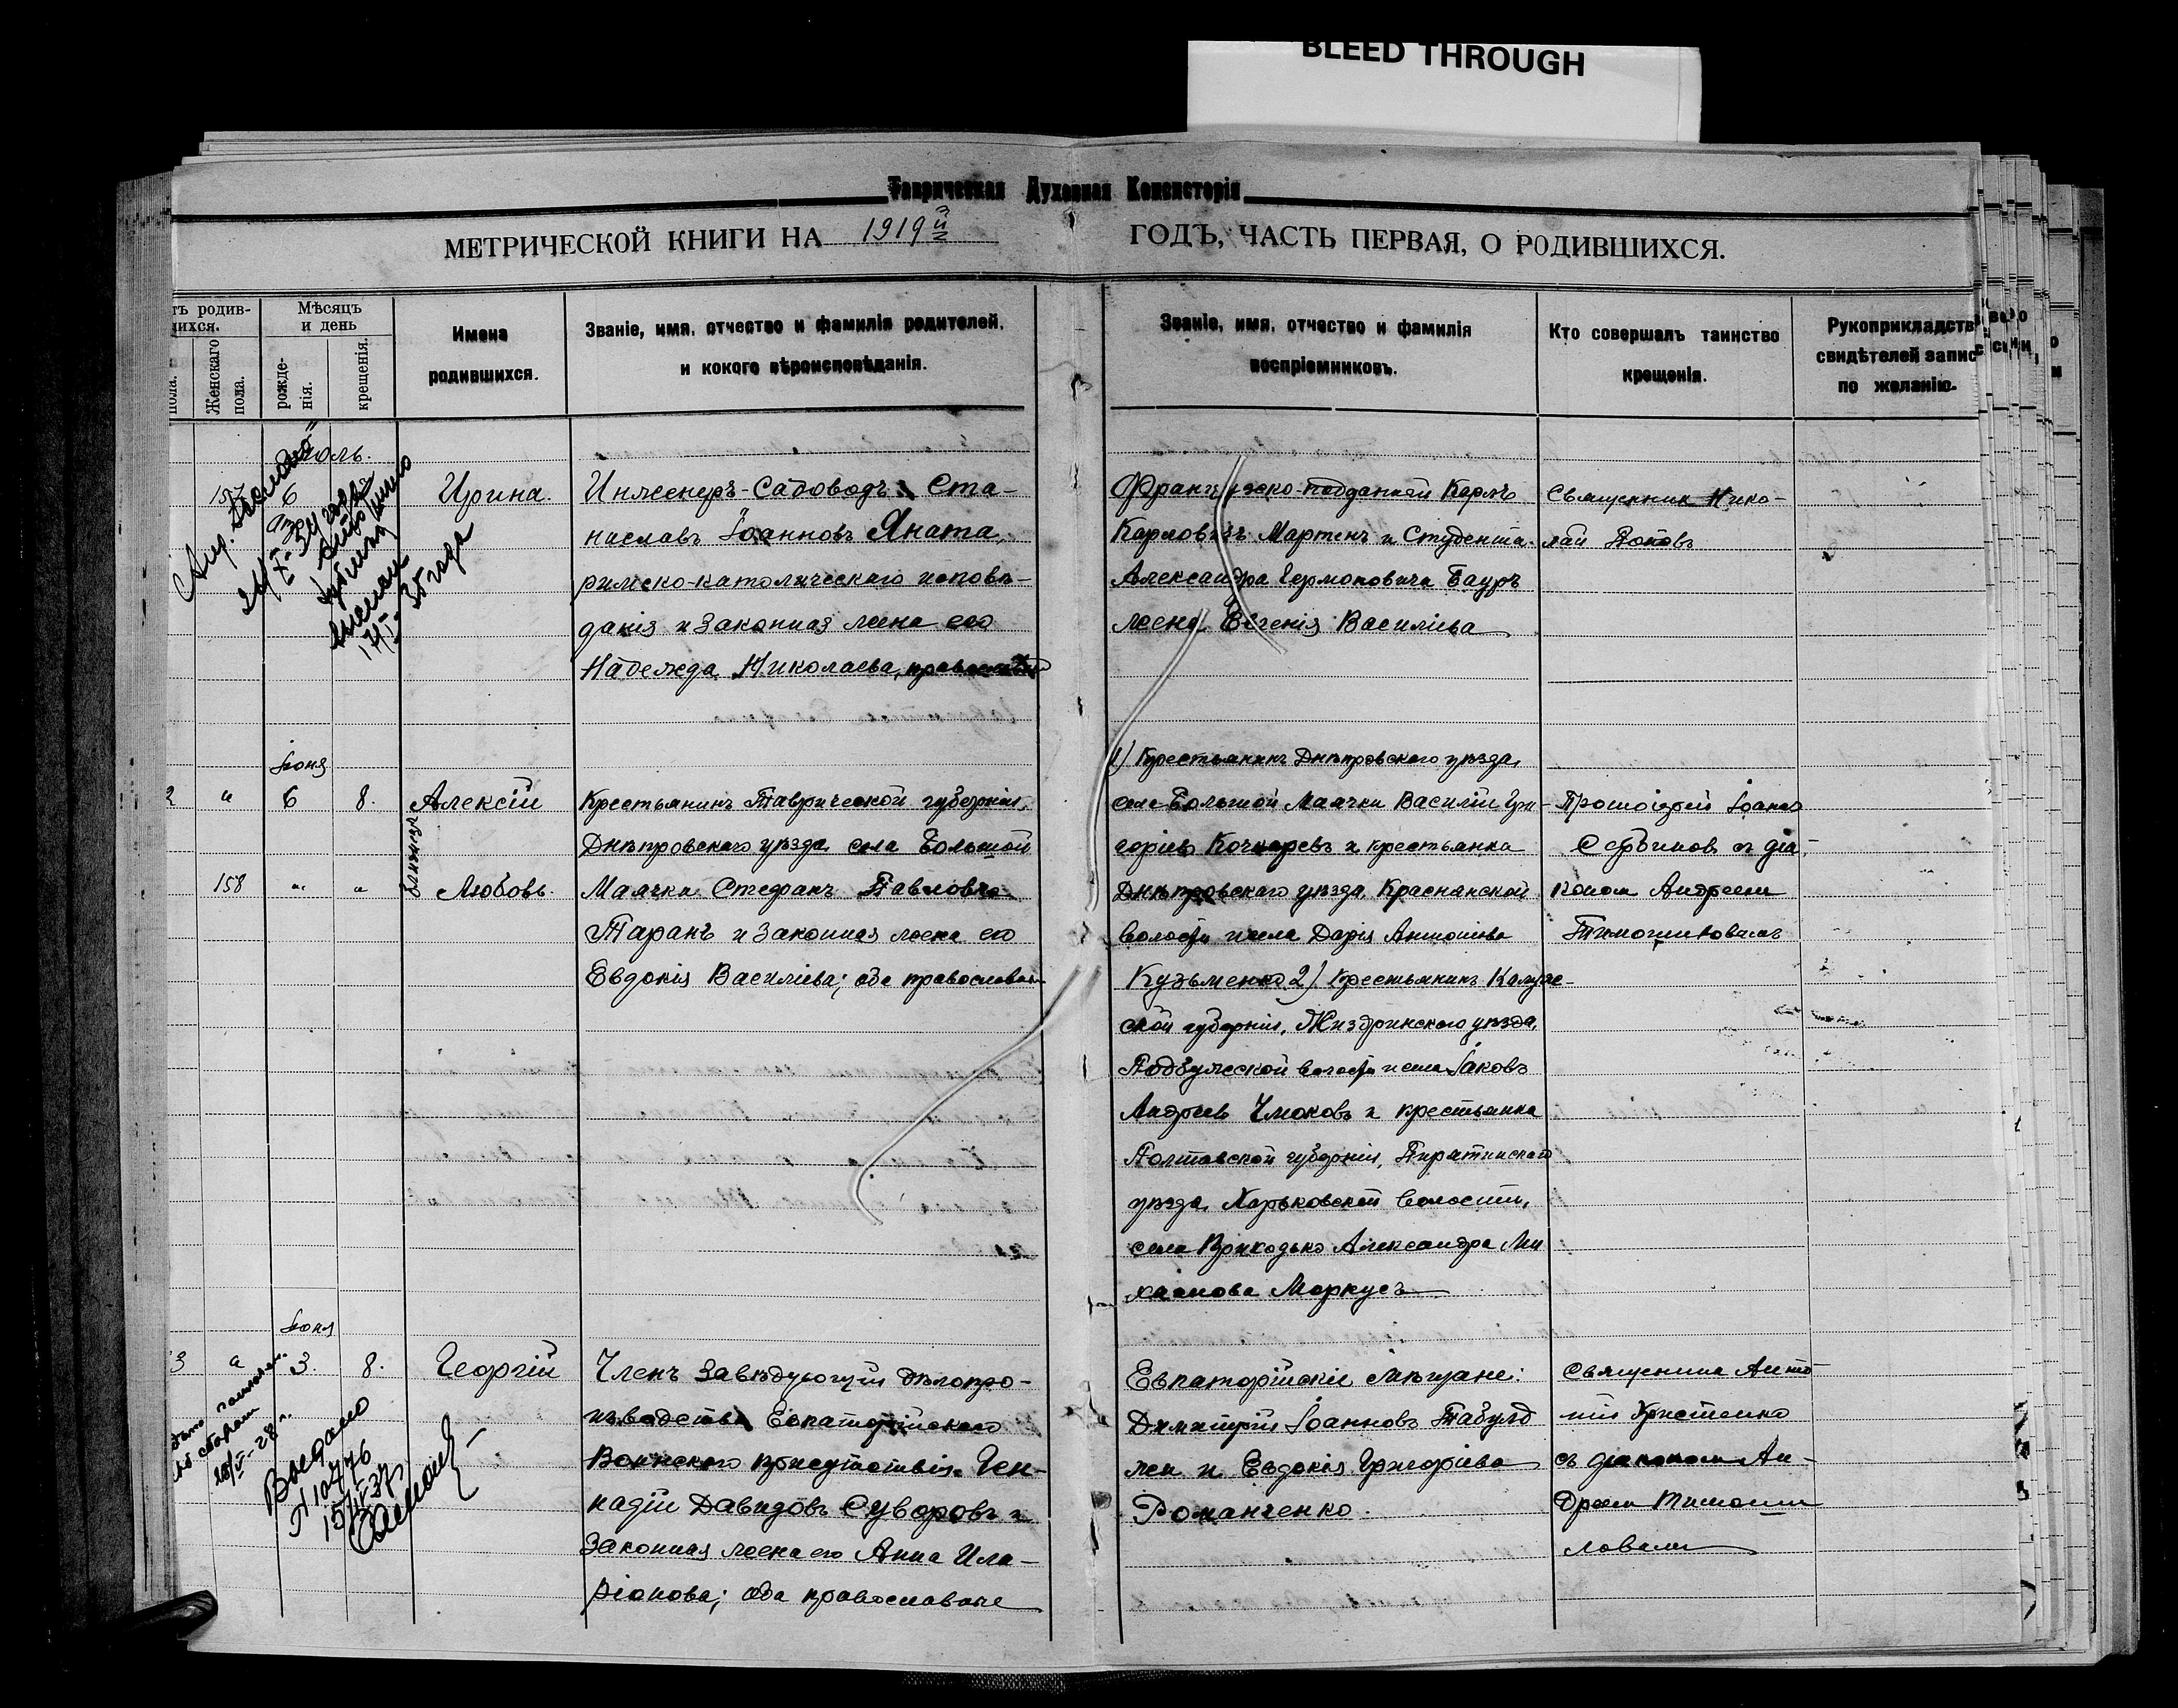 BLEED THROUGH
Таврическая Духовная Консисторія
МЕТРИЧЕСКОЙ КНИГИ НА 1919й ГОДЪ, ЧАСТЬ ПЕРВАЯ, О РОДИВШИХСЯ.
тъ родив-
шихся.
пола.
Женскаго пола.
Мѣсяцъ и день
рожде-нія.
крещенія.
Имена родившихся.
Званіе, имя, отчество и фамилія родителей,
и кокого вѣроисповѣданія.
Званіе, имя, отчество и фамилія
воспріемниковъ.
Кто совершалъ таинство
крещенія.
Рукоприкладств
свидѣтелей запис
по желанію.
157
6
Ирина.
Инженеръ-Садоводъ Ста-
ниславъ Іоанновъ Яната,
римско-католическаго исповѣ-
данія и законная жена его
Надежда Николаева,
Французско-подданный Карлъ
Карловичъ Мартенъ и Студента
Александра Бауръ
жена Евгенія Васильева
Священник Нико-
лай Поповъ
24/X-34 года
17/I-35 года
Іюня
2
"
6
8.
Алексій
близнецы
158
"
"
Любовь.
Крестьянинъ Таврической губерніи,
Днѣпровскаго уѣзда, села Большой
Маячки Стефанъ Павловъ
Таранъ и законная жена его
Евдокія Васильева; оба православн
1) Крестьянинъ Днѣпровскаго уѣзда,
села Большой Маячки Василій Гри-
горіевъ Кочкаревъ и крестьянка
Днѣпровскаго уѣзда, Краснянской
волости и села Дарія Антоніева
Кузьменко 2) Крестьянинъ Калуж-
ской губерніи, Жиздринского уѣзда,
Подбужской волости и села Іаковъ
Андреевъ Чмоковъ и крестьянка
Полтавской губерніи, Пирятинскаго
уѣзда, Харьковской волости,
села Приходько Александра Ми
хаилова Маркусъ
Протоіерей Іоаннъ
Сербиновъ и діа-
кономъ Андреем
Іюня
3
"
3.
8.
Георгій
Членъ завѣдующій дѣлопро-
изводства Евпаторійскаго
Воинского присутствія Ген-
надій Давидовъ Суворовъ и
законная жена его Анна Ила-
ріонова; оба православные
Евпаторійскіе мѣщане:
Димитрій Іоанновъ
и Евдокія Григоріева
Романченко.
Священник Анто
ній Христенко
съ діакономъ Ан-
дреем
Выдано
10776